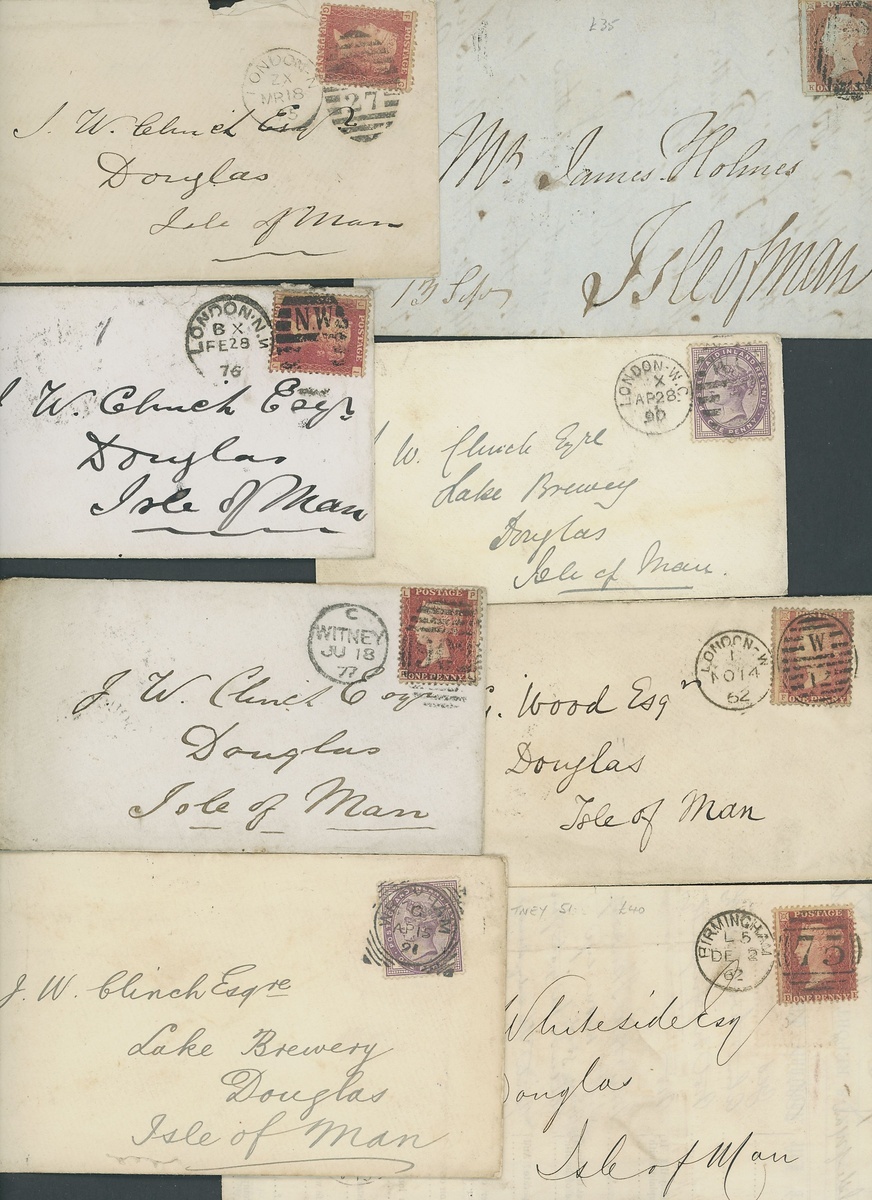 LONDON-N
ZX
MR 18
27
J. W. Clinch Esq
Douglas
Isle of Man
£35
Mr James Holmes
Isle of man
POSTAGE
LONDON·N.W
BX
FE 28
76
N.W
W. Clinch Esqr
Douglas
Isle of Man
LONDON-W.C
X
AP 28
90
W. Clinch Esqre
Lake Brewery
Douglas
Isle of Man.
C
WITNEY
JU 18
77
POSTAGE
ONE PENNY
J. W. Clinch Esqr
Douglas
Isle of Man
LONDON-W
1
NO 14
62
W
17
Wood Esqr
Douglas
Isle of Man
AP 15
91
J. W. Clinch Esqre
Lake Brewery
Douglas
Isle of Man
£40
BIRMINGHAM
L 5
DE 2
62
POSTAGE
75
ONE PENNY
Whiteside Esq
Douglas
Isle of Man